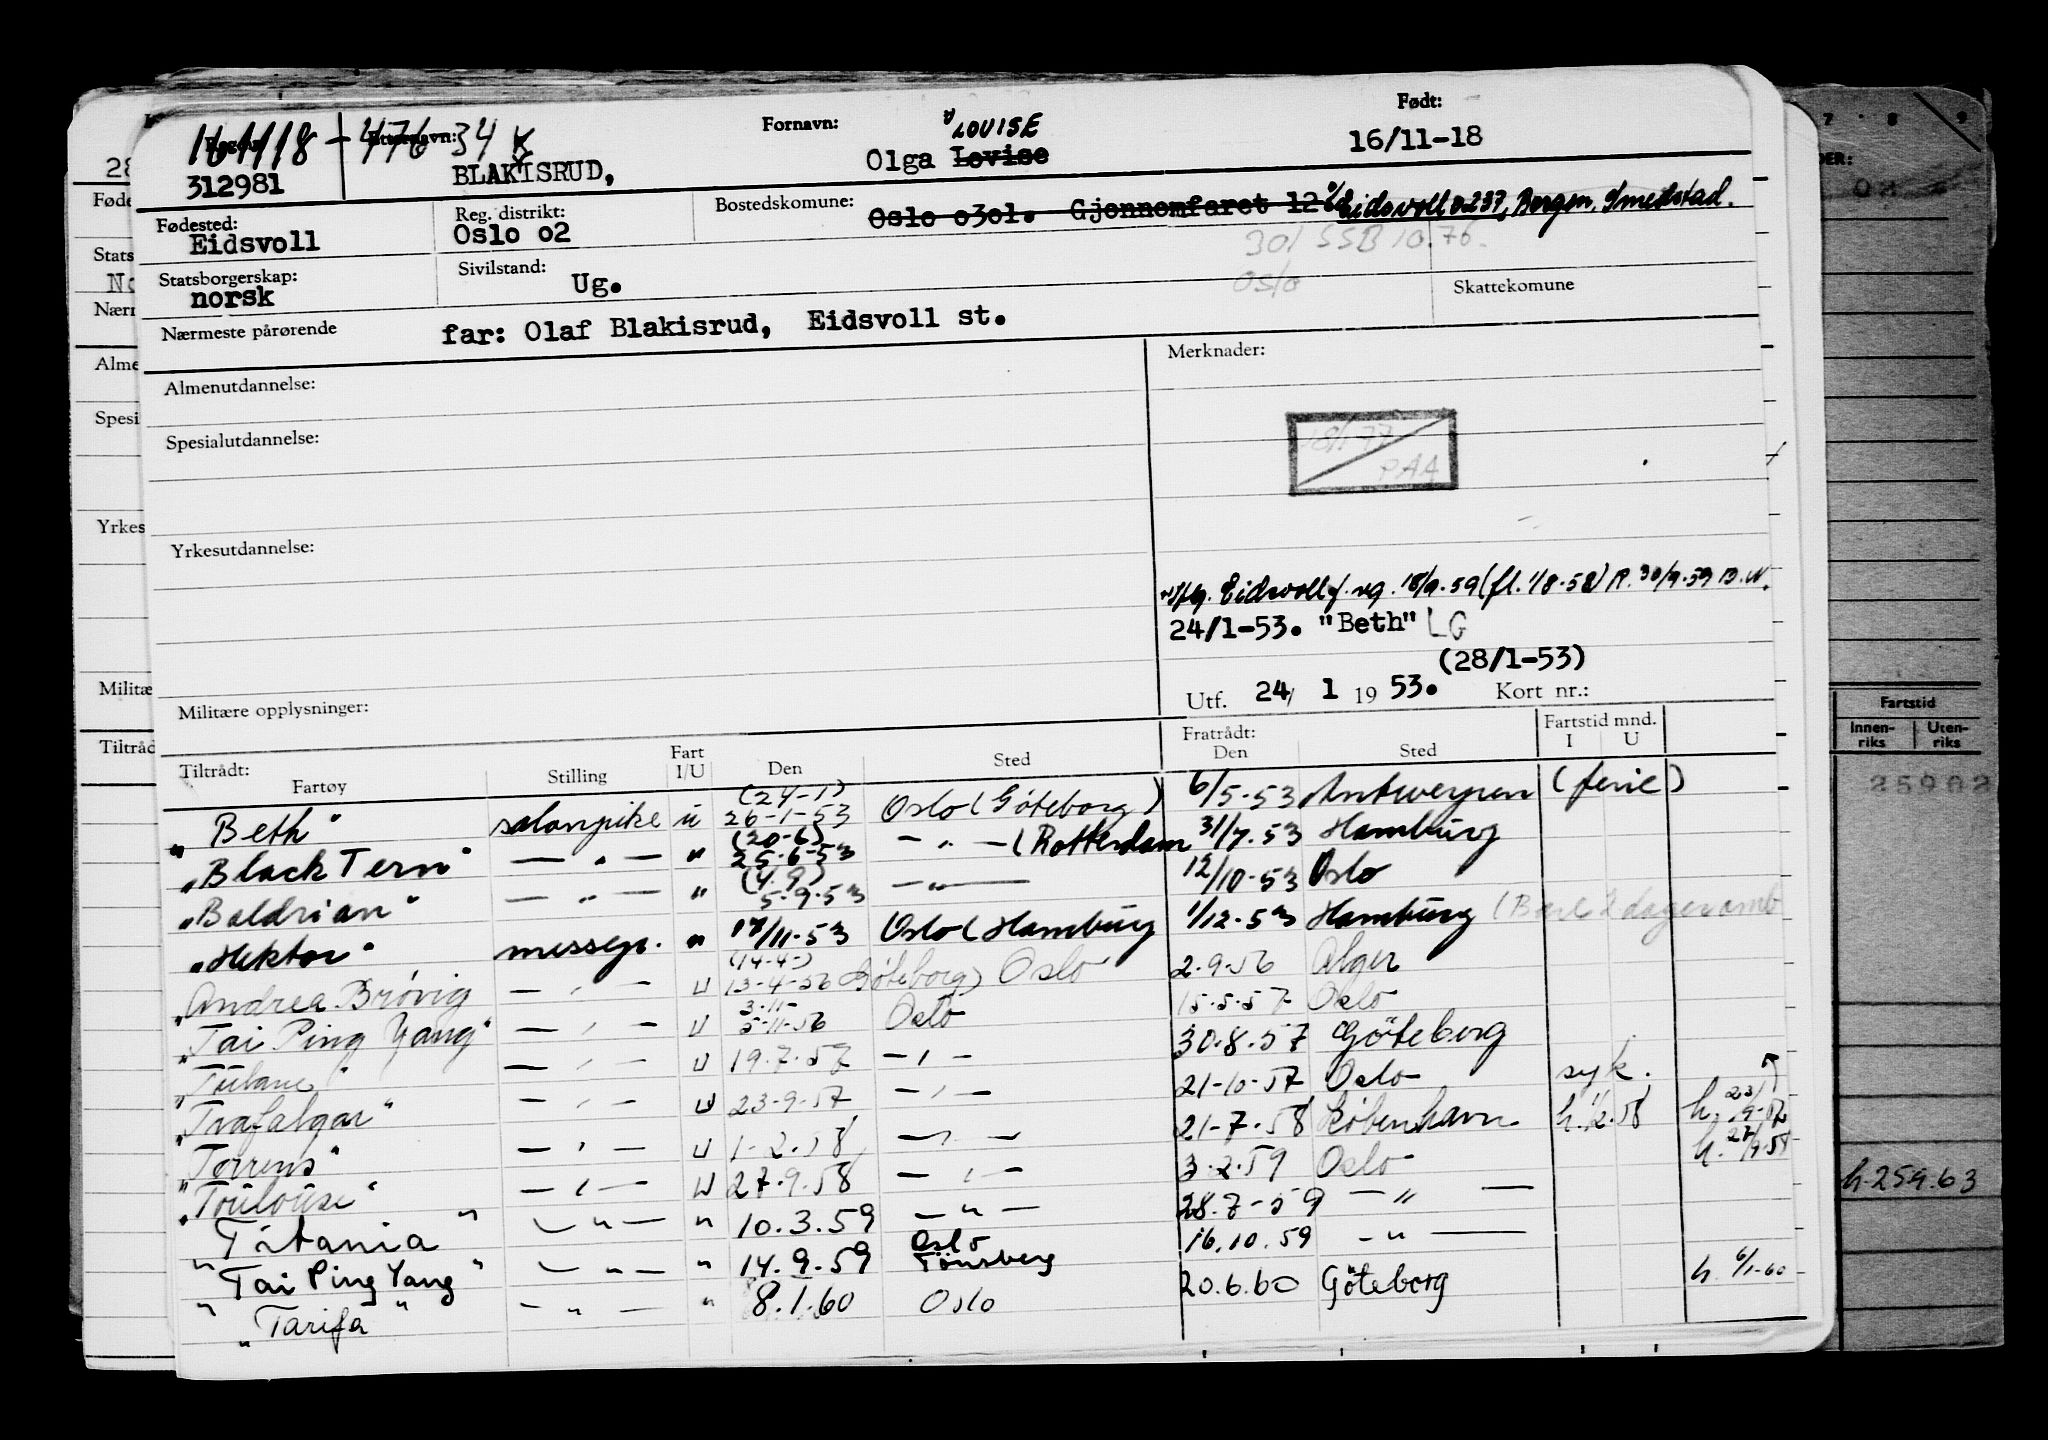 Født:
Fornavn: LOUISE
161118 - 476 34
312981 BLAKISRUD, Olga Lovise 16/11-18
Fødested: Eidsvoll Reg. distrikt: Oslo o2 Bostedskomune: Oslo o3o1. Gjennomfaret 12 Eidsvoll 0237, Bergen. Smedstad.
301 SSB 10.76.
Oslo
Statsborgerskap: norsk Sivilstand: Ug. Skattekomune
Nærmeste pårørende far: Olaf Blakisrud, Eidsvoll st.
Almenutdannelse: Merknader:
Spesialutdannelse: 18/1-77
PAA
Yrkesutdannelse:
Eidsvoll f. vg. 18/9.59 (fl. 1/8-58) R. 30/9-59 B.N.
24/1-53. "Beth" LG
(28/1-53)
Militære opplysninger: Utf. 24/ 1 1953. Kort nr.:
Tiltrådt: Fart Fratrådt: Fartstid mnd.
Fartøy Stilling I/U Den Sted Den Sted I U
"Beth" salonpike u (24-1) 26-1-53 Oslo (Göteborg) 6/5-53 Antwerpen (ferie)
"Black Tern" — " — " (20-6) 25-6-53 — " — (Rotterdam 31/7.53 Hamburg
"Baldrian" — " — " (4.9) 5.9.53 — " — 12/10-53 Oslo
"Hektor" messep. " 18/11-53 Oslo (Hamburg 1/12-53 Hamburg (Bare 2 dager omb
"Andrea Brövig — " — U (14-4-) 13-4-56 Göteborg) Oslo 2-9-56 Alger
"Tai Ping Yang" — " — U 3-11- 5-11-56 Oslo 15-5-57 Oslo
"Tulane" — " — U 19-7-57 — " — 30.8.57 Göteborg
"Trafalgar" — " — U 23-9-57 — " — 21-10-57 Oslo syk.
"Torrens" — " — U 1-2-58 — " — 21-7-58 København h. 1/2.58 h. 23/9-57
"Toulouse" — " — U 27-9-58 — " — 3-2-59 Oslo h. 27/9-58
"Titania" — " — " 10.3.59 — " — 28.7-59 — " —
"Tai Ping Yang" — " — " 14.9.59 Oslo Tønsberg 16.10.59 — " —
"Tarifa" — " — " 8.1.60 Oslo 20.6.60 Göteborg h. 6/1-60
28
Føde
Stats
No
Nærr
Alme
Spesi
Yrkes
Militæ
Tiltråd
7 8 9
DER:
Fartstid
Innen-
riks
Uten-
riks
25902
h.259.63